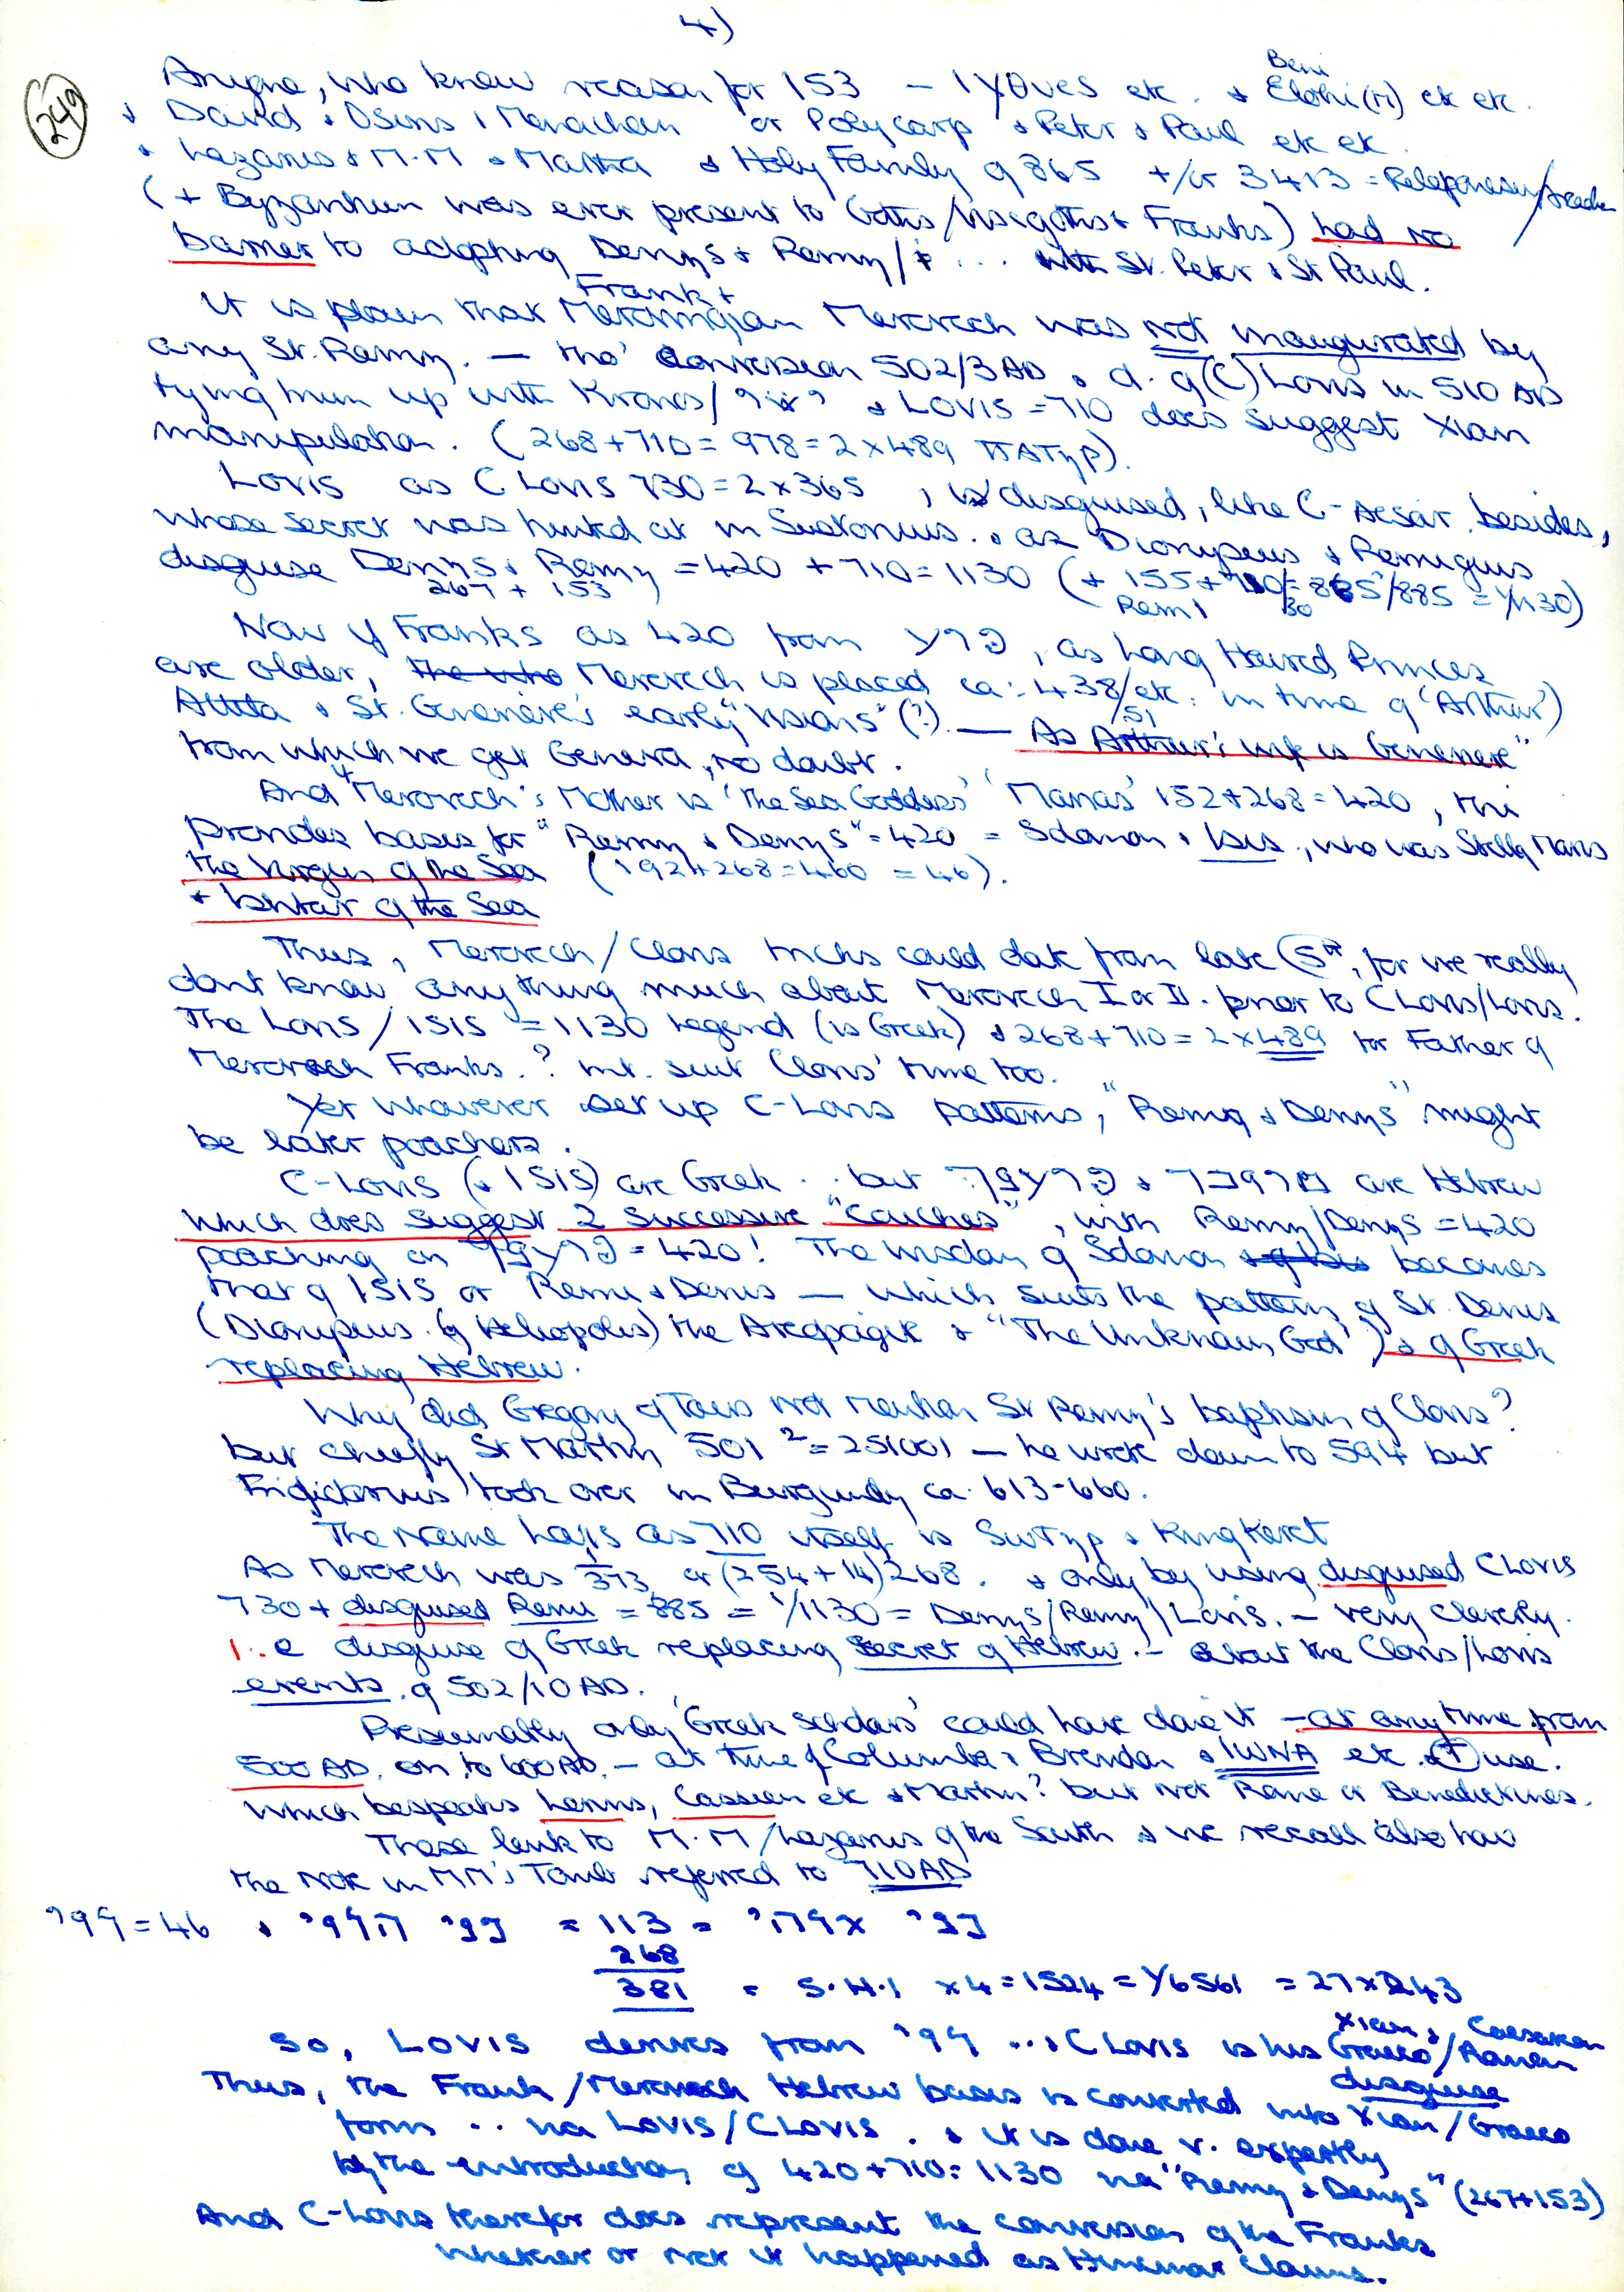 4)
249
Anyone, who knew reason for 153 – etc. & Beni Elohi(m) etc etc.
& David & Osiris, Menachem or Polycarp & Peter & Paul etc etc.
& Lazarus & M.M & Martha & Holy Family of 865 +/or 3413 =
(+ Byzantium was ever present to Goths/Visigoths & Franks) had no
barrier to adopting Denys & Remy/i ... with St. Peter & St Paul.
It is plain that Frank & Merovingian Merovech was not inaugurated by
any St. Remy. – tho' conversion 502/3 AD & d. of (C)Lovis in 510 AD
tying him up with Kronos/ & LOVIS = 710 does suggest Xian
manipulation. (268+710 = 978 = 2×489 ΠΑΤηρ).
Lovis as CLovis 730 = 2×365, is disguised, like C-Aesar, besides,
whose secret was hinted at in Suetonius. & as Dionysius & Remigius
disguise Denys & Remy = 420 + 710 = 1130 (+ 155 + 710/30 = 865/885 = 1/1130)
267 + 153
Remi
Now if Franks as 420 from, as Long Haired Princes
are older, Merovech is placed ca. 438/51 etc. in time of 'Arthur'
Attila & St. Genevieve's early "visions" (?). — As Arthur's wife is Genevere"
from which we get Geneva, no doubt.
And Merovech's Mother is 'the Sea Goddess' 'Marras' 152+268 = 420, this
provides basis for "Remy & Denys" = 420 = Solomon & Isis, who was Stella Maris
the Virgin of the Sea (192+268 = 460 = 46).
& Ishtar of the Sea
Thus, Merovech/Clovis tricks could date from late C5th, for we really
dont know anything much about Merovech I or II. prior to CLovis/Lovis.
The Lovis/ISIS = 1130 legend (is Greek) & 268+710 = 2×489 for Father of
Merovech Franks.? mt. suit Clovis' time too.
Yet whoever set up C-Lovis patterns, "Remy & Denys" might
be later poachers.
C-LOVIS (& ISIS) are Greek .. but & are Hebrew
which does suggest 2 successive "couches", with Remy/Denys = 420
poaching on = 420! The wisdom of Solomon becomes
that of ISIS or Remi & Denis — which suits the pattern of St. Denis
(Dionysius (of Heliopolis) the Areopagite & "The Unknown God") & of Greek
replacing Hebrew.
Why did Gregory of Tours not mention St Remy's baptism of Clovis?
but chiefly St Martin 501² = 251001 — he wrote down to 594 but
took over in Burgundy ca. 613-660.
The name as 710 itself is & King Keret
As Merovech was 1/373 or (254+14) 268. & only by using disguised CLovis
730 + disguised Remi = 885 = 1/1130 = Denys/Remy/Lovis. – very cleverly.
i.e disguise of Greek replacing secret of Hebrew. – about the Clovis/Lovis
events of 502/10 AD.
Presumably only 'Greek scholars' could have done it – at any time from
500 AD. on to 600 AD. – at time of Columba & Brendan & IWNA etc. & use.
which bespeaks Lerins, Cassien etc & Martin? but not Rome or Benedictines.
These link to M.M/Lazarus of the South & we recall also how
the note in MM's Tomb referred to 710 AD
= 46 & = 113 =
268
381 = S.H.1 ×4 = 1524 = 1/6561 = 27×243
So, LOVIS derives from ... & CLovis is his Xian & Graeco/Roman Caesarean disguise
Thus, the Frank/Merovech Hebrew basis is converted into Xian/Graeco
form .. via LOVIS/CLOVIS. & it is done v. expertly
by the introduction of 420+710 = 1130 via "Remy & Denys" (267+153)
And C-Lovis therefor does represent the conversion of the Franks
whether or not it happened as Hincmar claims.